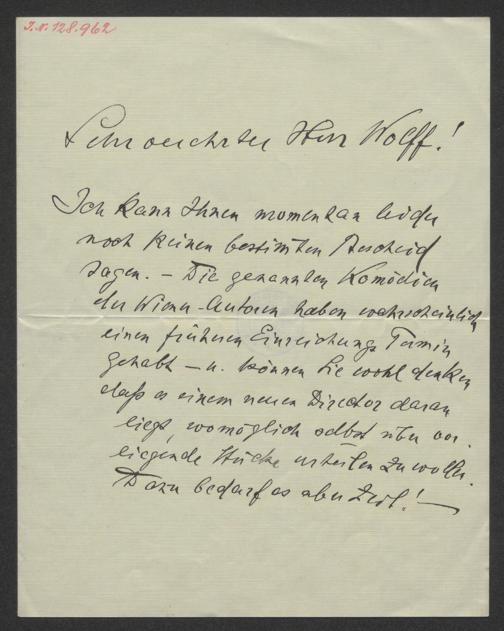 J.N. 128.962
Sehr verehrter Herr Wolff!
Ich kann Ihnen momentan leider
noch keinen bestimten Bescheid
sagen. – Die genannten Komödien
der Wiener-Autoren haben wahrscheinlich
einen früheren Einreichungs Termin
gehabt – u. können Sie wohl denken
daß es einem neuen Director daran
liegt, womöglich selbst über vor-
liegende Stücke urteilen zu wollen.
Dazu bedarf es aber Zeit! –